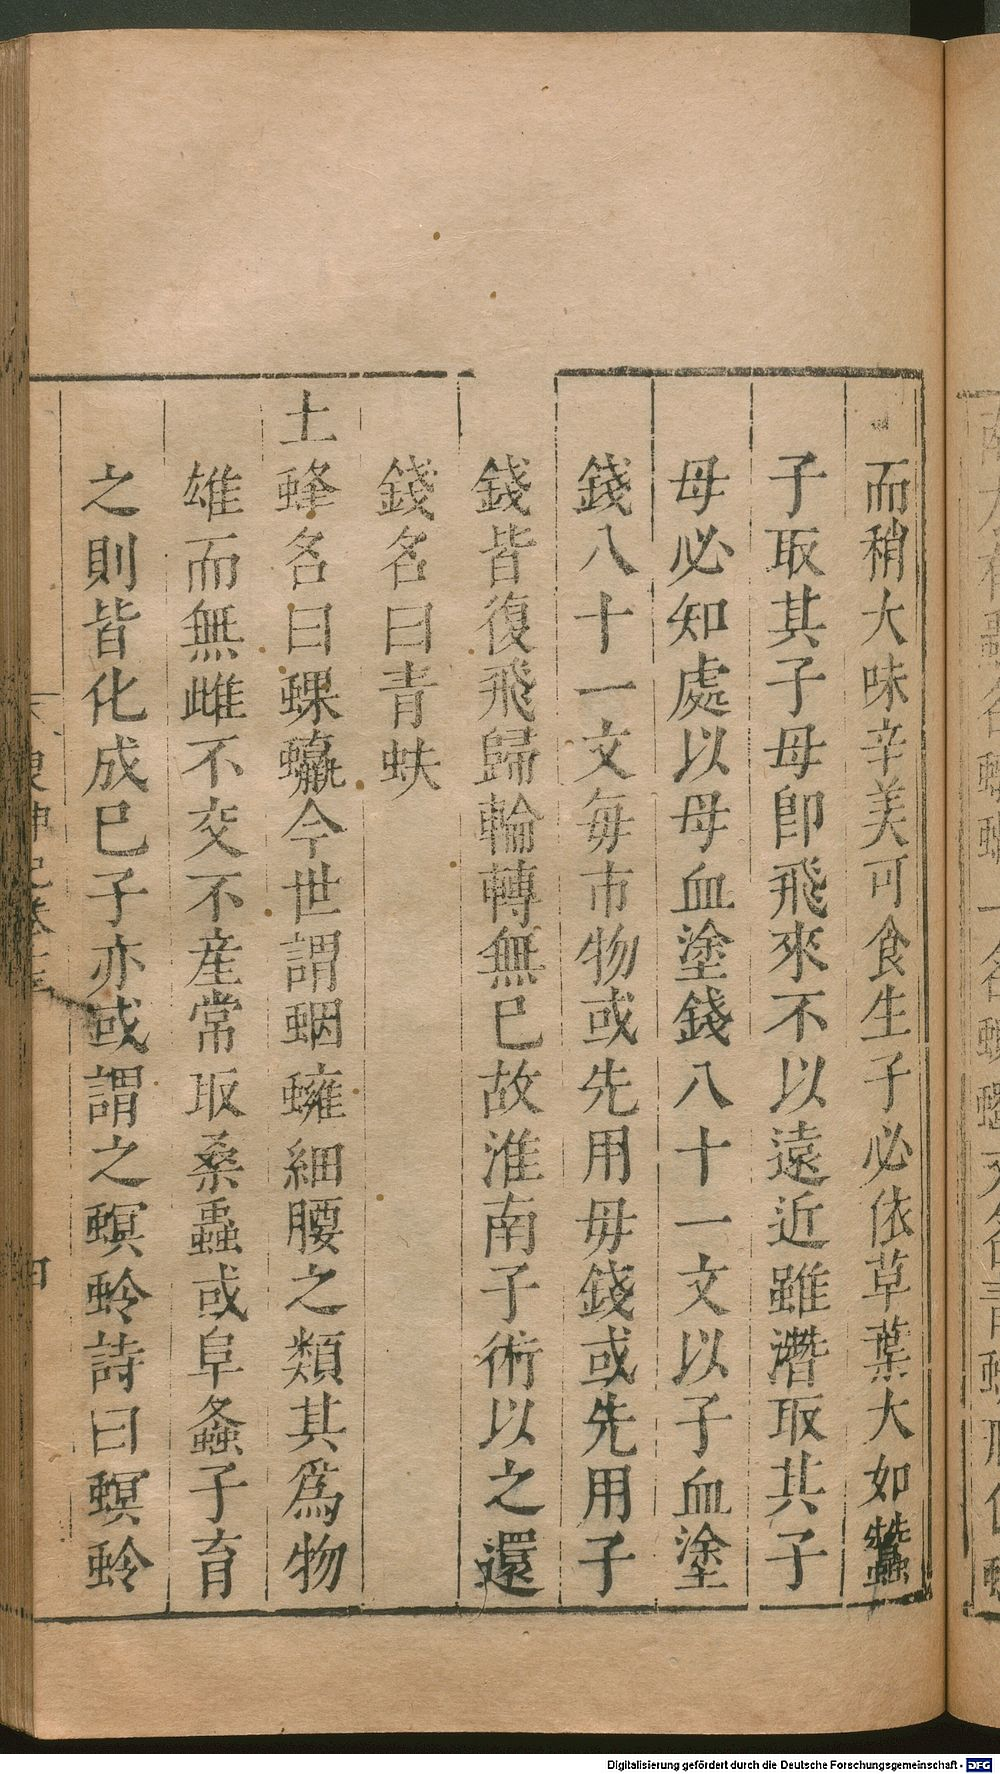 而稍大味辛美可食生子必依草葉大如蠶
子取其子母即飛來不以遠近雖潛取其子
母必知處以母血塗錢八十一文以子血塗
錢八十一文每市物或先用母錢或先用子
錢皆復飛歸輪轉無已故淮南子術以之還
錢名曰青蚨
土蜂名曰蜾蠃今世謂蛔蠮細腰之類其為物
雄而無雌不交不產常取桑蟲或阜螽子育
之則皆化成巳子亦或謂之螟蛉詩曰螟蛉
Digitalisierung gefördert durch die Deutsche Forschungsgemeinschaft - DFG